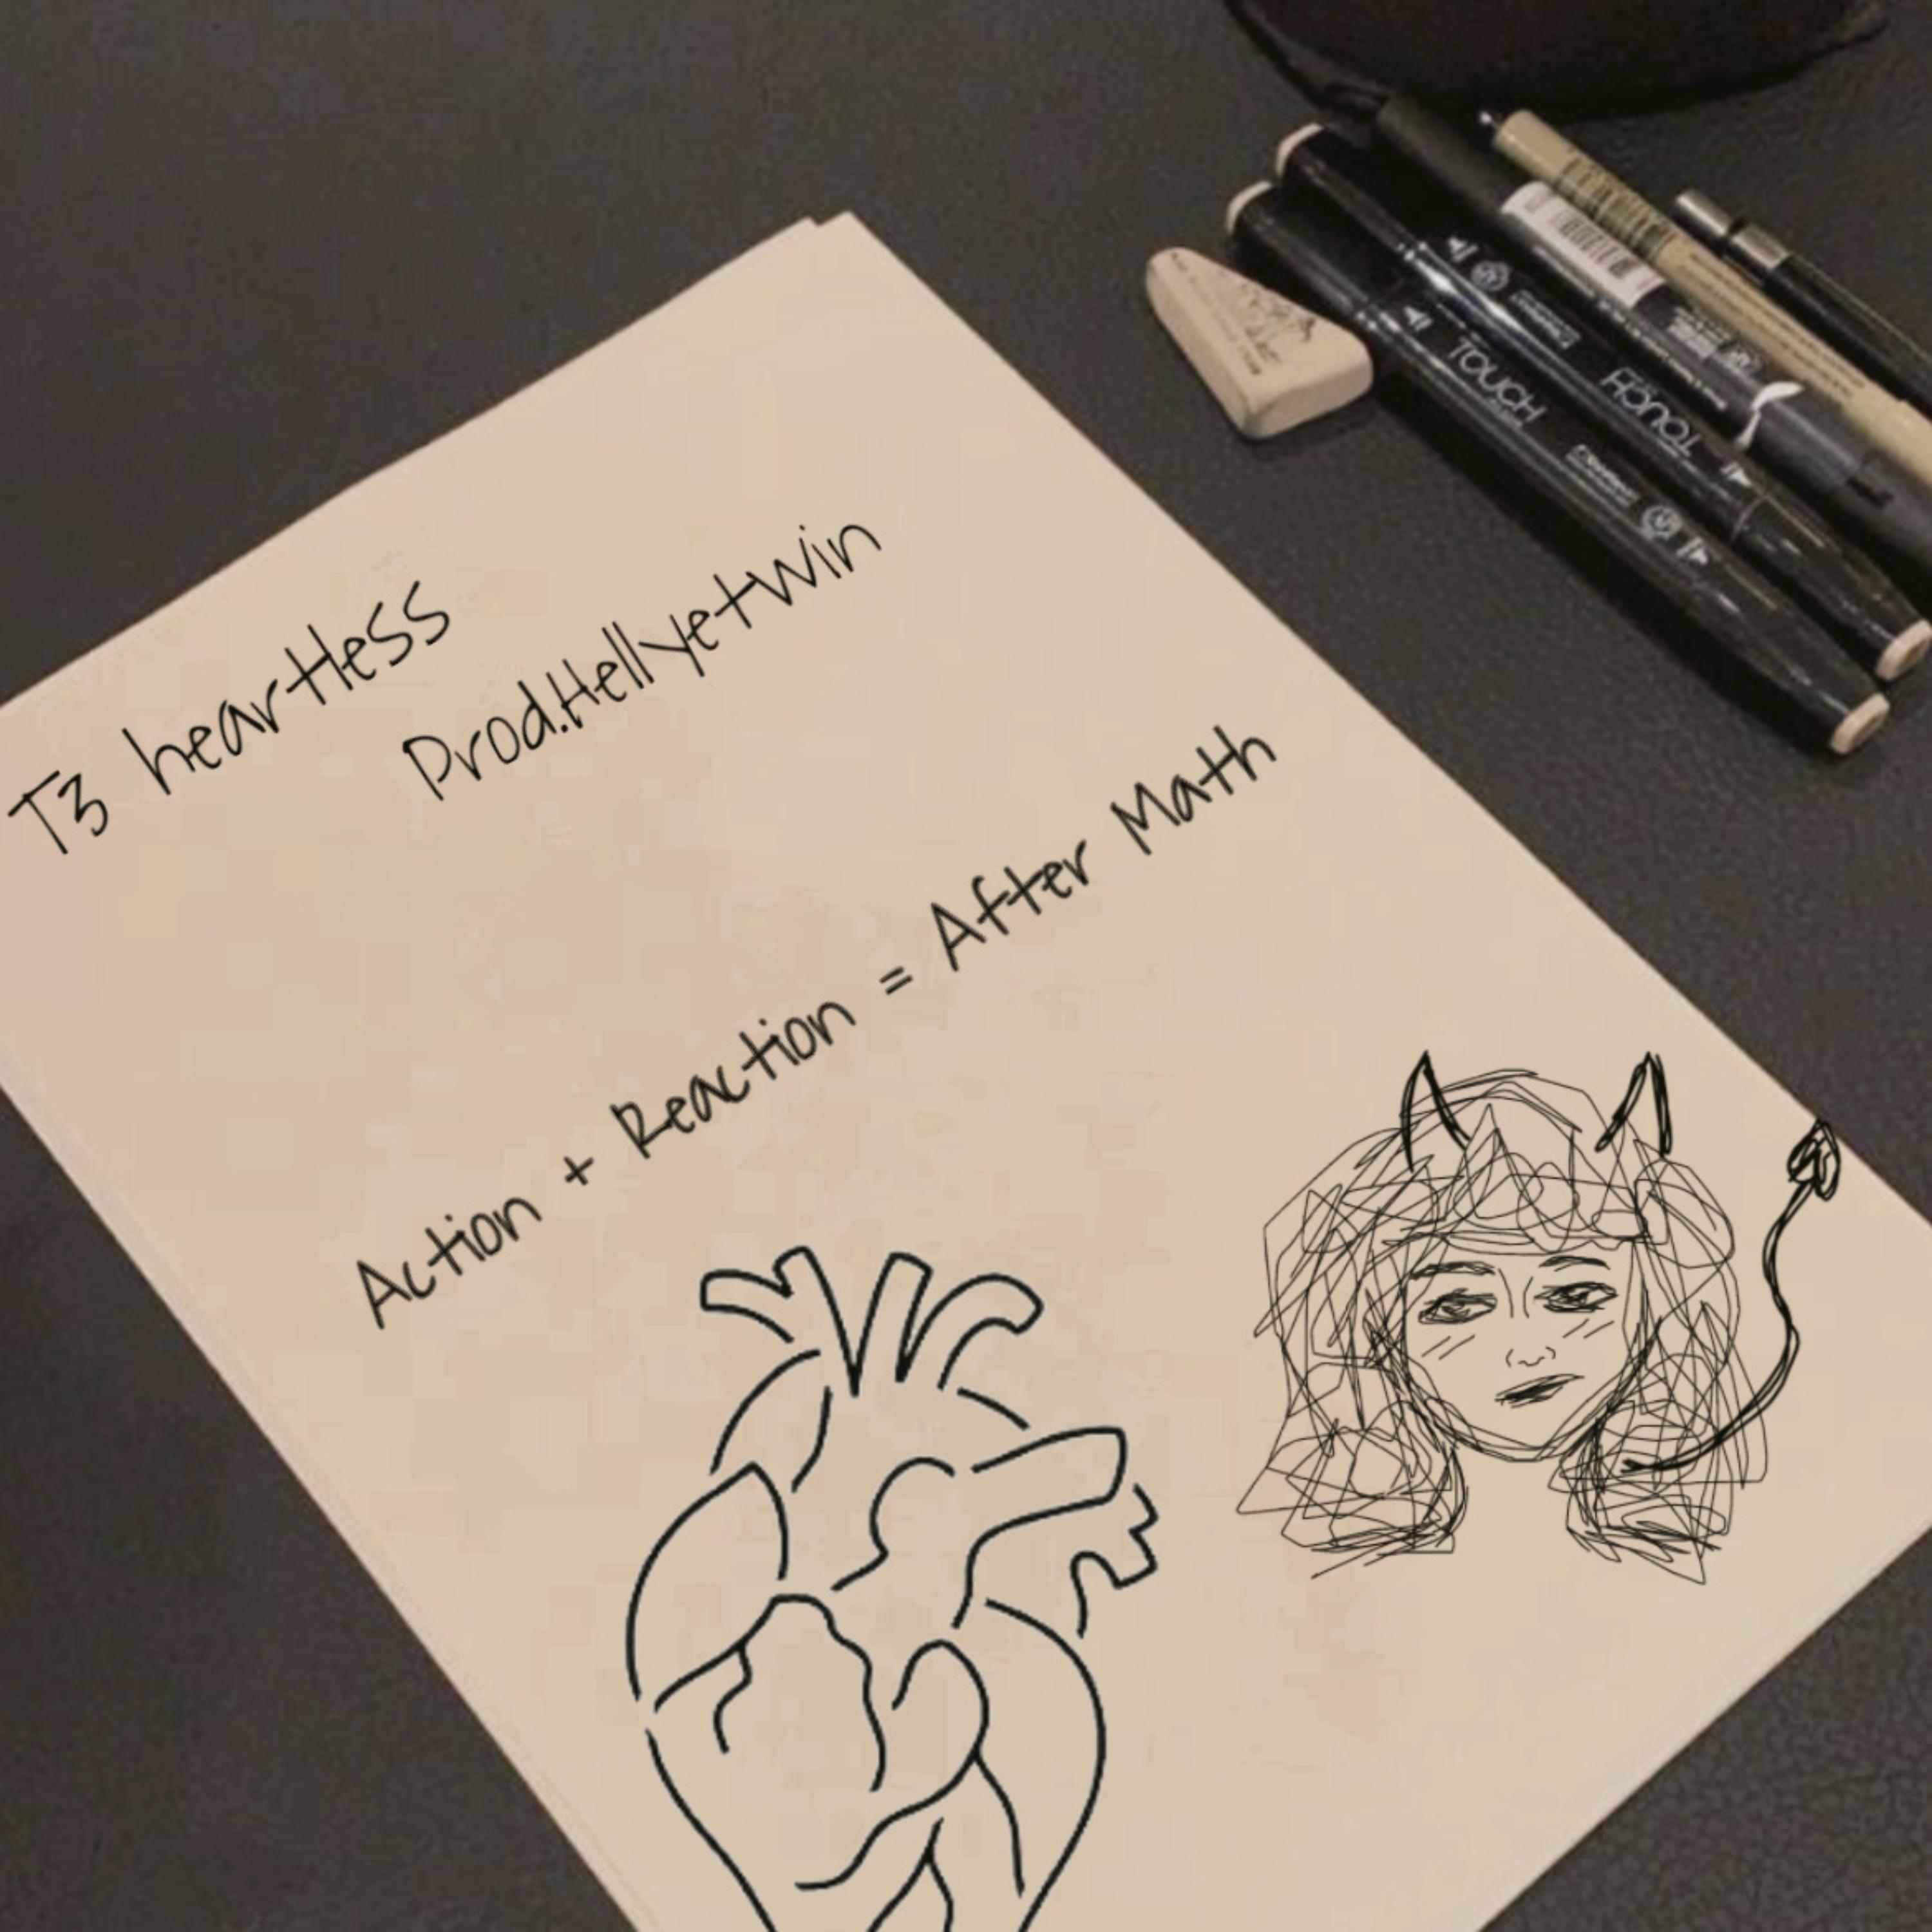 T3 heartless
Prod.Hellyetwin
Action + Reaction = After Math
TOUCH
TOUCH